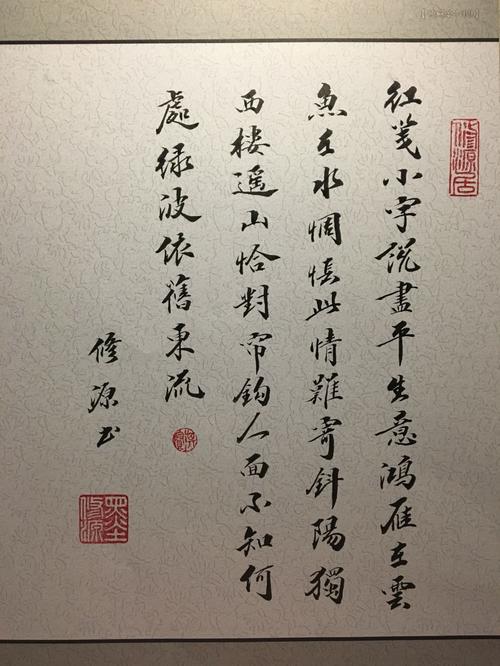 红笺小字说盡平生意鴻雁在雲
魚在水惆悵此情難寄斜陽獨
西楼遥山恰對帘鈎人面不知何
處绿波依舊東流
修源书
修源居